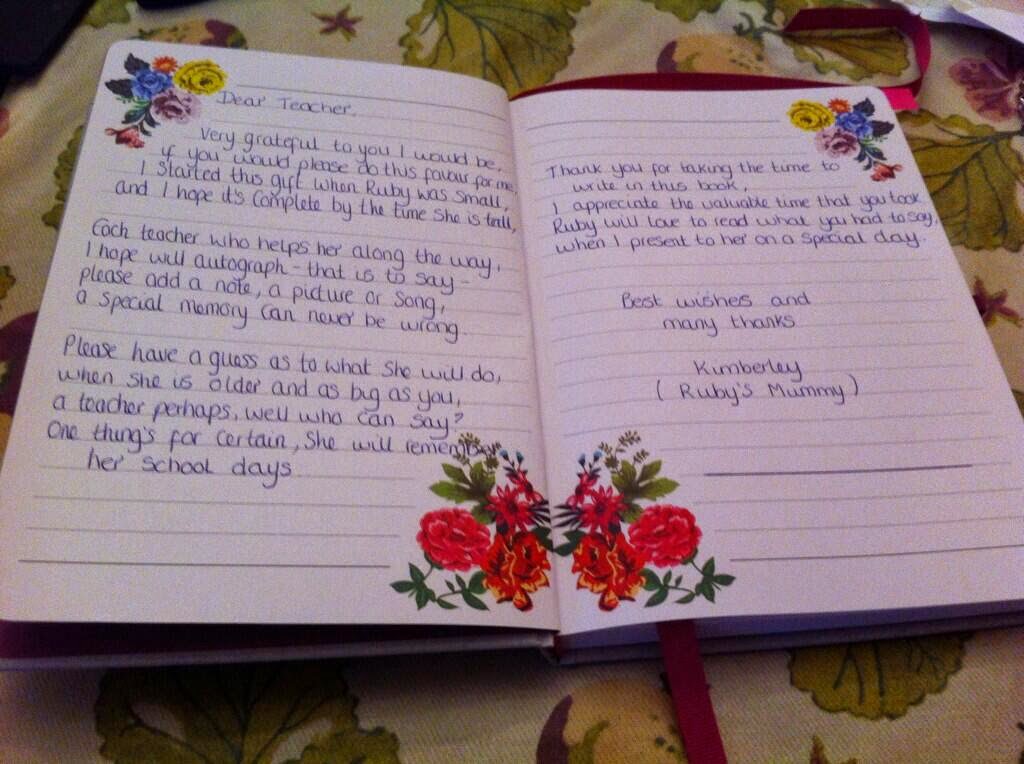 Dear Teacher,
Very grateful to you I would be,
if you would please do this favour for me,
I started this gift when Ruby was small,
and I hope it's complete by the time she is tall,
Each teacher who helps her along the way,
I hope will autograph - that is to say -
please add a note, a picture or song,
a special memory can never be wrong.
Please have a guess as to what she will do,
when she is older and as big as you,
a teacher perhaps, well who can say?
One thing's for certain, she will remember
her school days
Thank you for taking the time to
write in this book,
I appreciate the valuable time that you took.
Ruby will love to read what you had to say,
when I present to her on a special day.
Best wishes and
many thanks
Kimberley
(Ruby's Mummy)